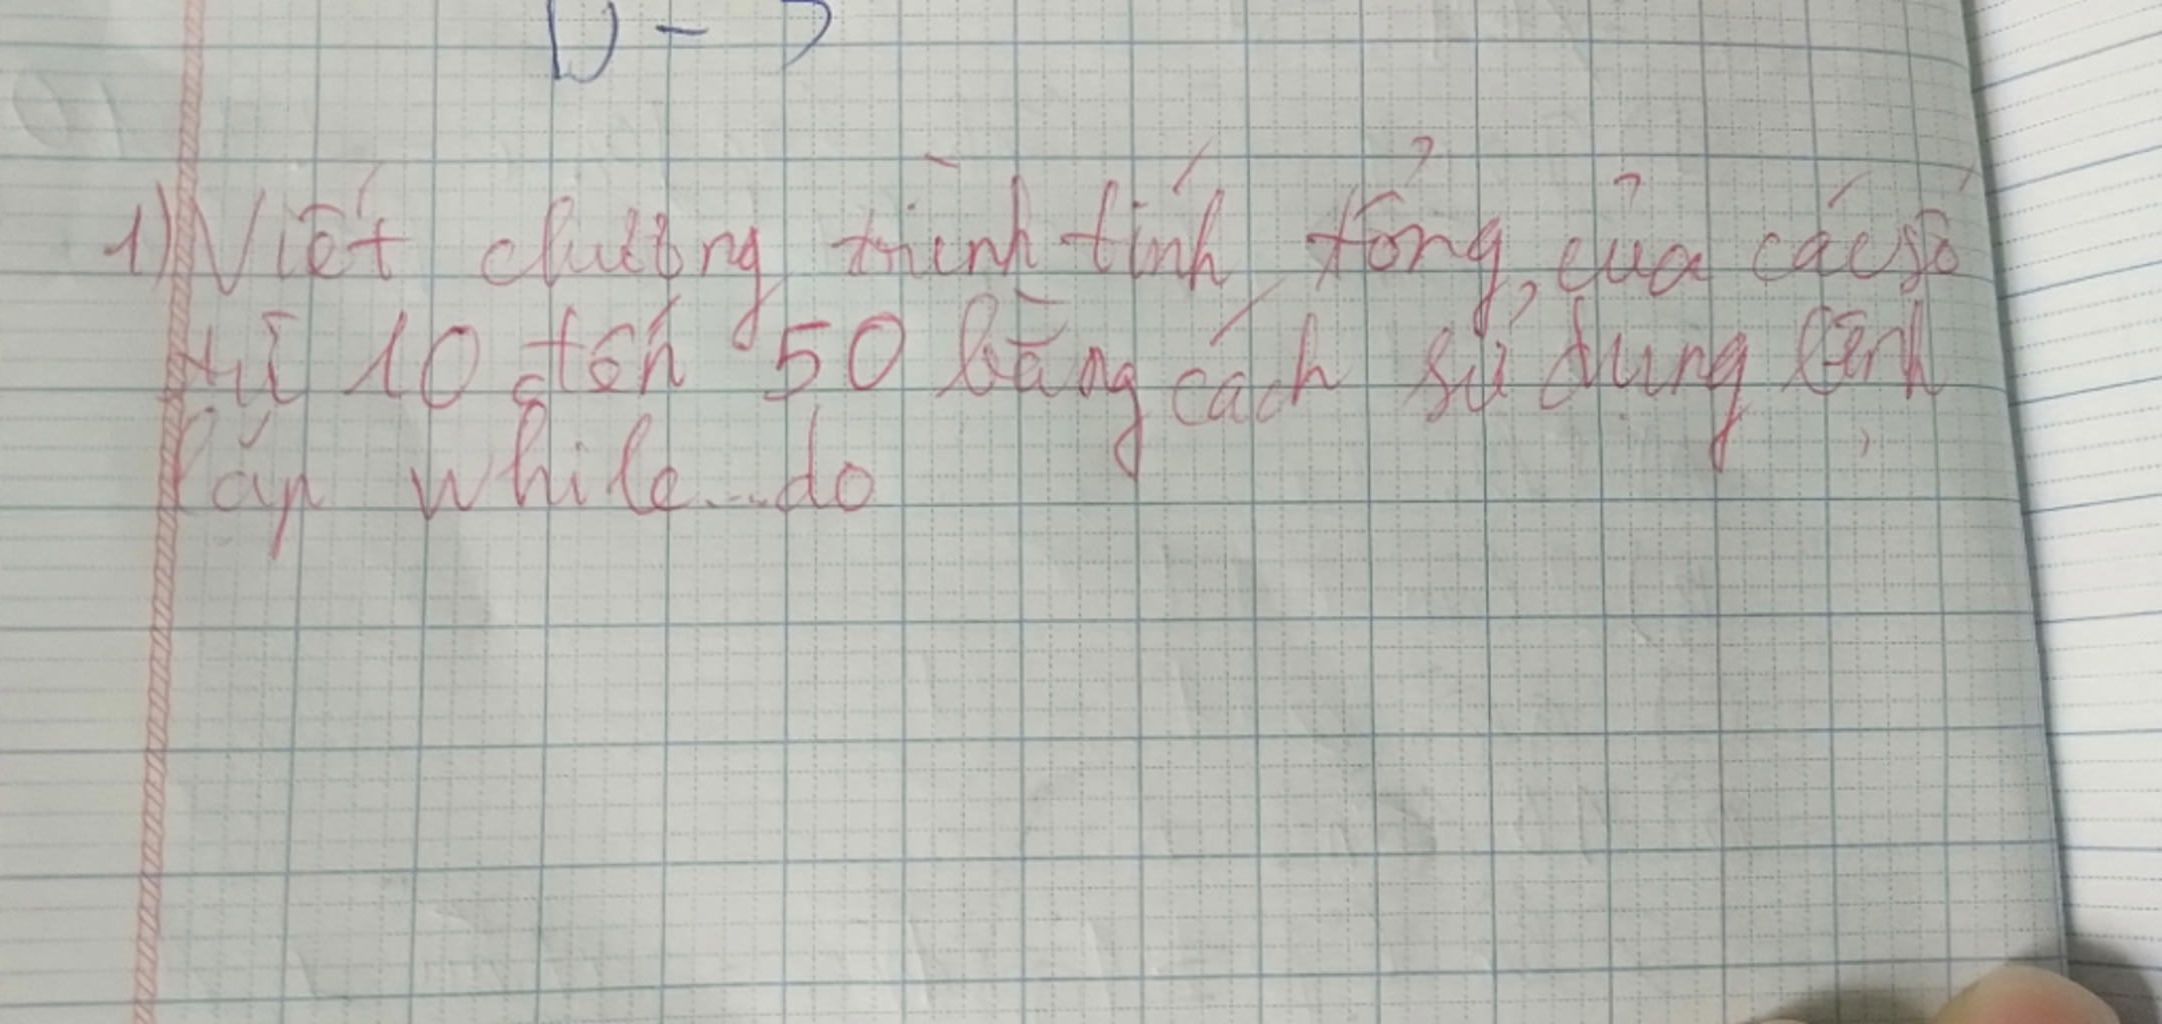 1) Viết chương trình tính tổng của các số
từ 10 đến 50 bằng cách sử dụng lệnh
lặp while...do